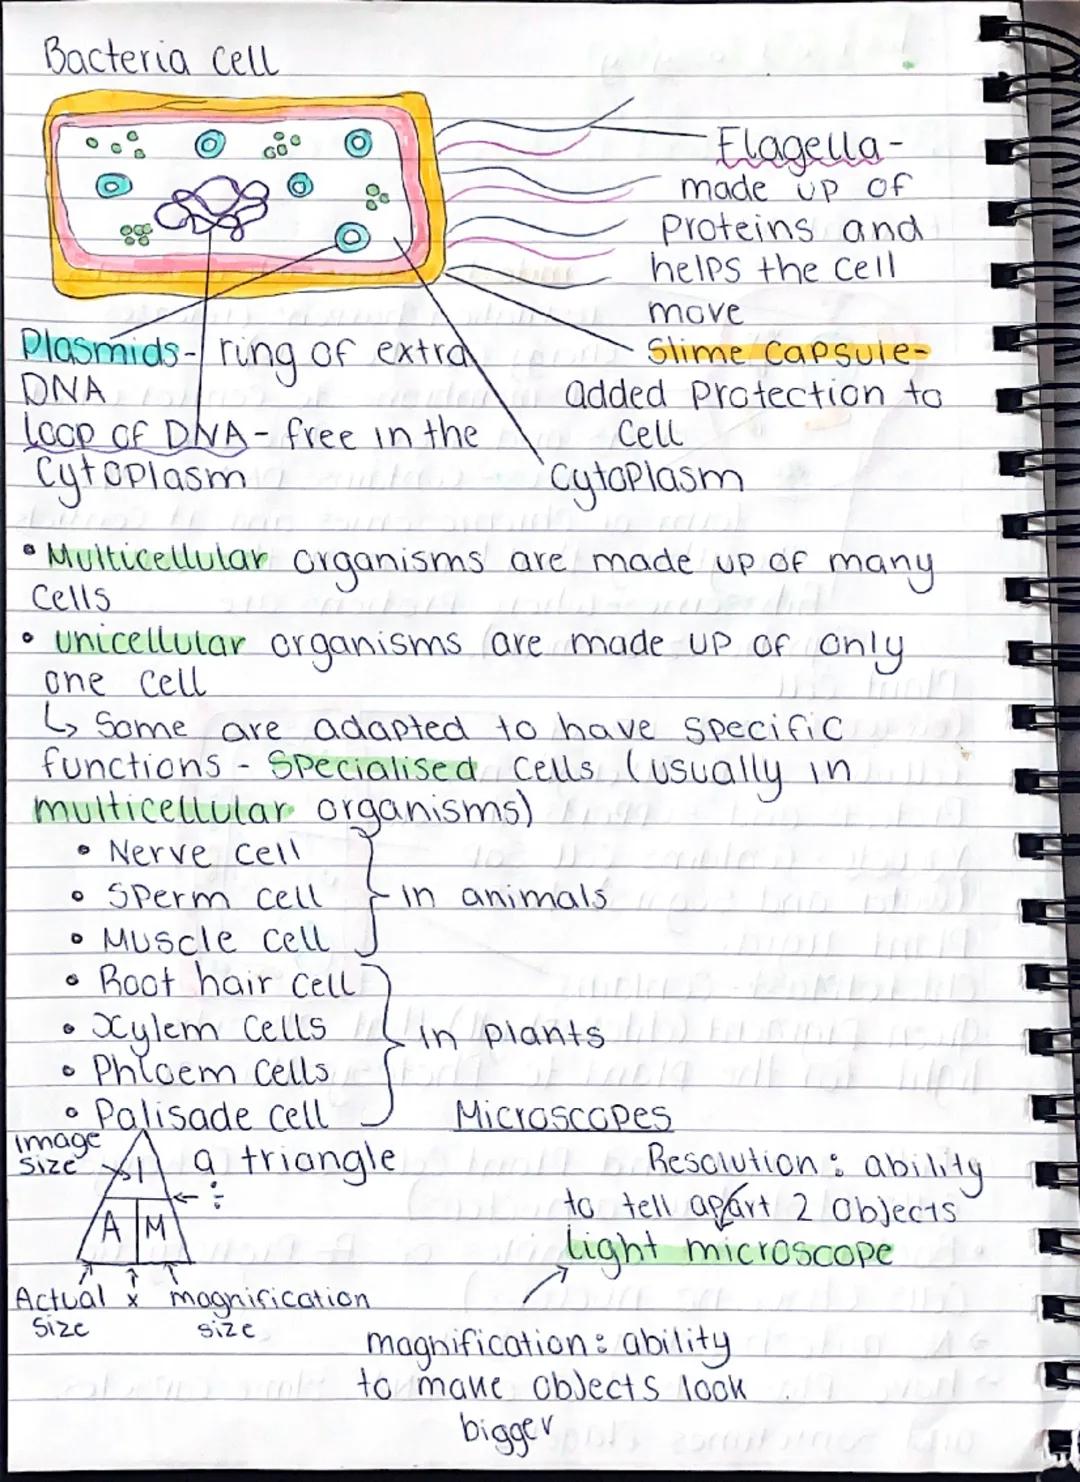 Bacteria cell
Flagella -
made up of
Proteins and
helps the cell
move
Slime Capsule-
added Protection to
Cell
Cytoplasm
Plasmids- ring of extra
DNA
loop of DNA - free in the
Cytoplasm
• Multicellular organisms are made up of many
Cells
• unicellular organisms are made up of only
one cell
↳ Some are adapted to have specific
functions - Specialised cells (usually in
multicellular organisms)
• Nerve cell
• Sperm cell
• Muscle cell
in animals
• Root hair cell
• Xylem cells
• Phloem cells
• Palisade cell
in plants
Image
size
I
a triangle
÷
A M
Actual x magnification
size size
Microscopes
Resolution: ability
to tell apart 2 objects
light microscope
magnification: ability
to make objects look
bigger